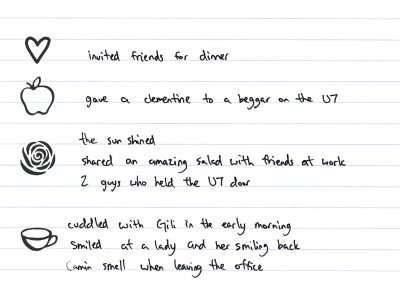 invited friends for dinner
gave a clementine to a beggar on the U7
the sun shined
shared an amazing salad with friends at work
2 guys who held the U7 door
cuddled with Gili in the early morning
smiled at a lady and her smiling back
smell when leaving the office